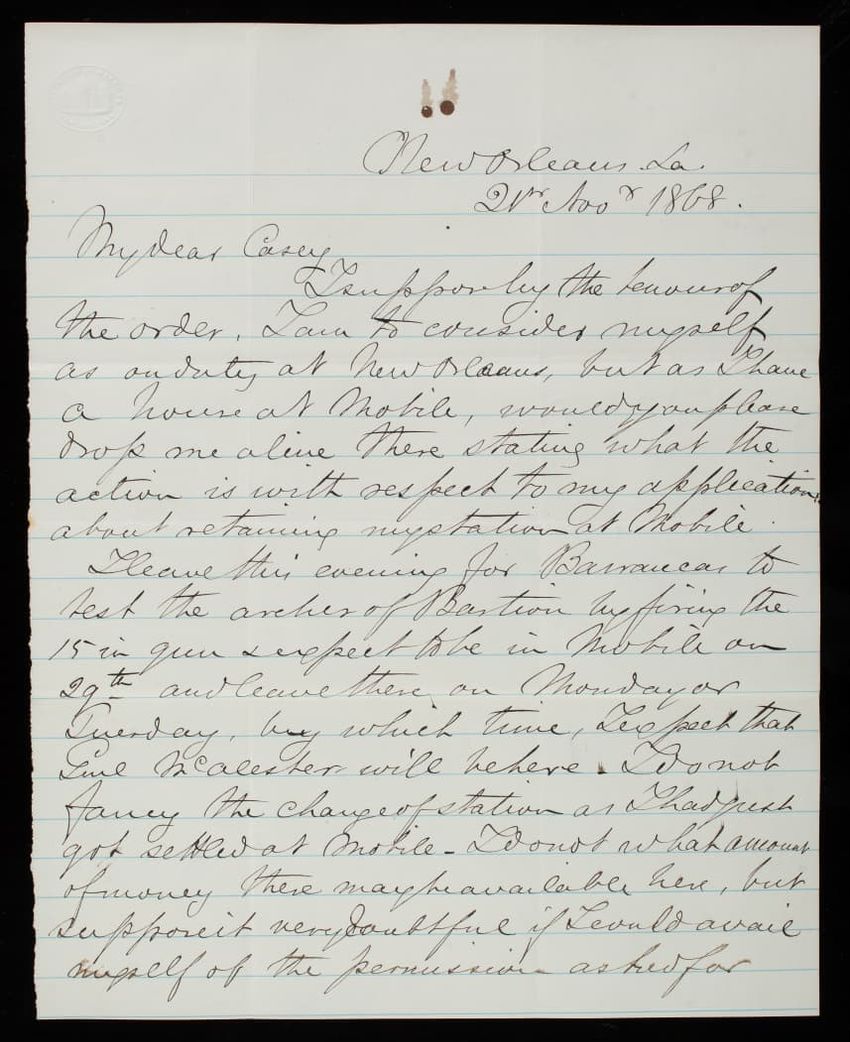 New Orleans. La.
21st Novr 1868.
My dear Casey
I suppose by the tenour of
the order, I am to consider myself
as on duty at New Orleans, but as I have
a house at Mobile, would you please
drop me a line there stating what the
action is with respect to my application
about retaining my station at Mobile.
I leave this evening for Barrancas to
test the arches of Bastion by firing the
15 in gun & expect to be in Mobile on
29th and leave there on Monday or
Tuesday, by which time, I expect that
Genl McAlester will be here. I do not
fancy the change of station as I had just
got settled at Mobile - I do not what amount
of money there may be available here, but
suppose it very doubtful if I could avail
myself of the permission asked for